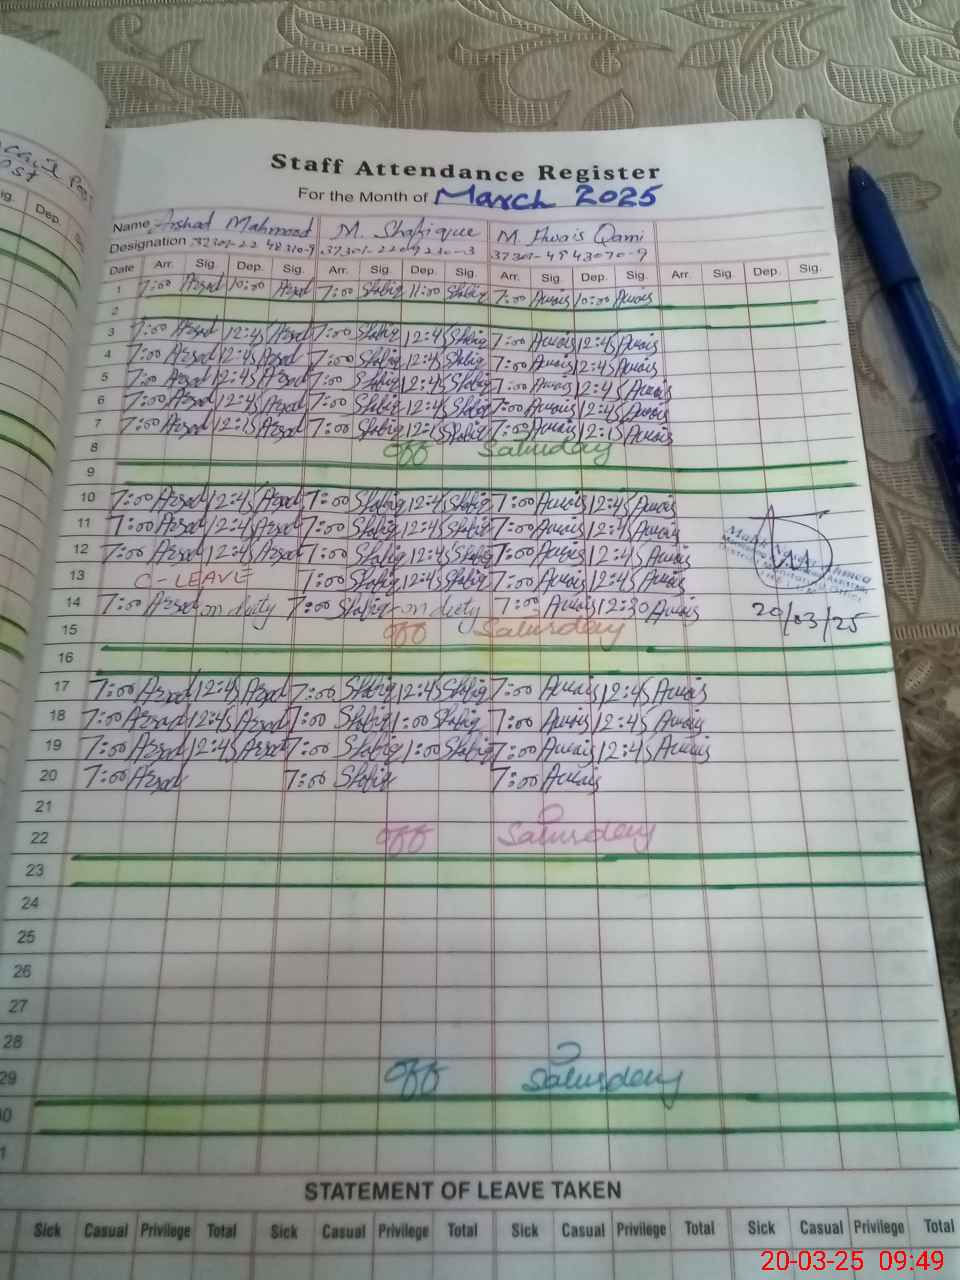 Staff Attendance Register
For the Month of March 2025
Name Arshad Mahmood M. Shafique M. Awais Qarni
Designation
Date Arr. Sig. Dep. Sig. Arr. Sig. Dep. Sig. Arr. Sig. Dep. Sig. Arr. Sig. Dep. Sig.
1 7:00 Arsad 10:00 Arsad 7:00 Shafiq 11:00 Shafiq 7:00 Awais 10:00 Awais
2
3 7:00 Arsad 12:45 Arsad 7:00 Shafiq 12:45 Shafiq 7:00 Awais 12:45 Awais
4 7:00 Arsad 12:45 Arsad 7:00 Shafiq 12:45 Shafiq 7:00 Awais 12:45 Awais
5 7:00 Arsad 12:45 Arsad 7:00 Shafiq 12:45 Shafiq 7:00 Awais 12:45 Awais
6 7:00 Arsad 12:45 Arsad 7:00 Shafiq 12:45 Shafiq 7:00 Awais 12:45 Awais
7 7:00 Arsad 12:15 Arsad 7:00 Shafiq 12:15 Shafiq 7:00 Awais 12:15 Awais
8 off Saturday
9
10 7:00 Arsad 12:45 Arsad 7:00 Shafiq 12:45 Shafiq 7:00 Awais 12:45 Awais
11 7:00 Arsad 12:45 Arsad 7:00 Shafiq 12:45 Shafiq 7:00 Awais 12:45 Awais
12 7:00 Arsad 12:45 Arsad 7:00 Shafiq 12:45 Shafiq 7:00 Awais 12:45 Awais
13 C-LEAVE 7:00 Shafiq 12:45 Shafiq 7:00 Awais 12:45 Awais
14 7:00 Arsad on duty 7:00 Shafiq on duty 7:00 Awais 12:30 Awais
20/03/25
15 off Saturday
16
17 7:00 Arsad 12:45 Arsad 7:00 Shafiq 12:45 Shafiq 7:00 Awais 12:45 Awais
18 7:00 Arsad 12:45 Arsad 7:00 Shafiq 1:00 Shafiq 7:00 Awais 12:45 Awais
19 7:00 Arsad 12:45 Arsad 7:00 Shafiq 1:00 Shafiq 7:00 Awais 12:45 Awais
20 7:00 Arsad 7:00 Shafiq 7:00 Awais
21
22 off Saturday
23
24
25
26
27
28
29 off Saturday
STATEMENT OF LEAVE TAKEN
Sick Casual Privilege Total Sick Casual Privilege Total Sick Casual Privilege Total Sick Casual Privilege Total
20-03-25 09:49